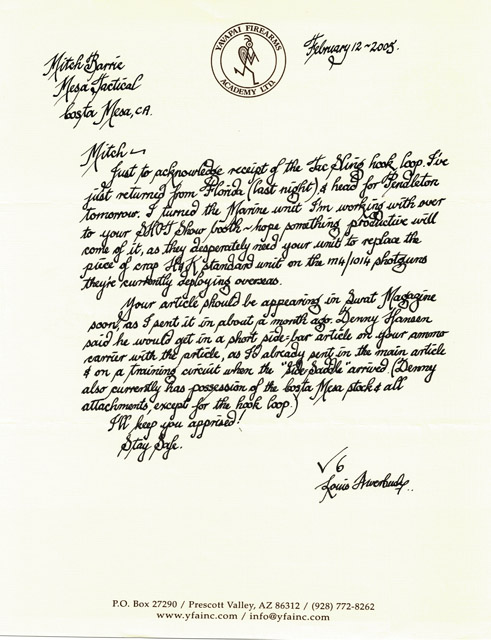 YAVAPAI FIREARMS
ACADEMY LTD.
February 12~2005.
Mitch Barrie
Mesa Tactical
Costa Mesa, CA.
Mitch~
Just to acknowledge receipt of the Tac Sling hook loop. I've
just returned from Florida (last night) & head for Pendleton
tomorrow. I turned the Marine unit I'm working with over
to your SHOT Show booth ~ hope something productive will
come of it, as they desperately need your unit to replace the
piece of crap H&K standard unit on the M4/1014 shotguns
they're currently deploying overseas.
Your article should be appearing in Swat Magazine
soon, as I sent it in about a month ago. Denny Hansen
said he would get in a short side-bar article on your ammo
carrier with the article, as I'd already sent in the main article
& on a training circuit when the "Side Saddle" arrived (Denny
also currently has possession of the Costa Mesa stock & all
attachments, except for the hook loop.)
I'll keep you apprised!
Stay Safe.
√6
Louis Awerbuck..
P.O. Box 27290 / Prescott Valley, AZ 86312 / (928) 772-8262
www.yfainc.com / info@yfainc.com